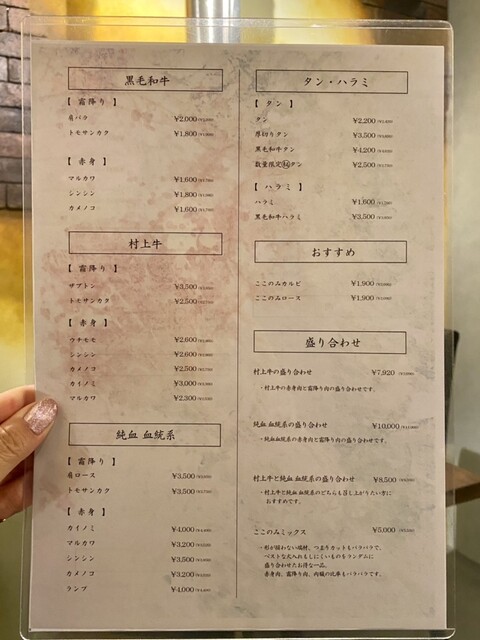 黒毛和牛
【 霜降り 】
肩バラ ¥2,000
トモサンカク ¥1,800
【 赤身 】
マルカワ ¥1,600
シンシン ¥1,800
カメノコ ¥1,600
村上牛
【 霜降り 】
ザブトン ¥3,500
トモサンカク ¥2,500
【 赤身 】
ウチモモ ¥2,600
シンシン ¥2,600
カメノコ ¥2,500
カイノミ ¥3,000
マルカワ ¥2,300
純血 血統系
【 霜降り 】
肩ロース ¥3,500
トモサンカク ¥3,500
【 赤身 】
カイノミ ¥4,000
マルカワ ¥3,200
シンシン ¥3,500
カメノコ ¥3,200
ランプ ¥4,000
タン・ハラミ
【 タン 】
タン ¥2,200
厚切りタン ¥3,500
黒毛和牛タン ¥4,200
数量限定 タン ¥2,500
【 ハラミ 】
ハラミ ¥1,600
黒毛和牛ハラミ ¥3,500
おすすめ
ここのみカルビ ¥1,900
ここのみロース ¥1,900
盛り合わせ
村上牛の盛り合わせ ¥7,920
・村上牛の赤身肉と霜降り肉の盛り合わせです。
純血 血統系の盛り合わせ ¥10,000
・純血血統系の赤身肉と霜降り肉の盛り合わせです。
村上牛と純血 血統系の盛り合わせ ¥8,500
・村上牛と純血 血統系のどちらも召し上がりたい方に
おすすめです。
ここのみミックス ¥5,000
・形が揃わない端材、つまりカットもバラバラで、
ベストな火入れもしにくいものもランダムに
盛り合わせたお得な一品。
赤身肉、霜降り肉、内臓の比率もバラバラです。